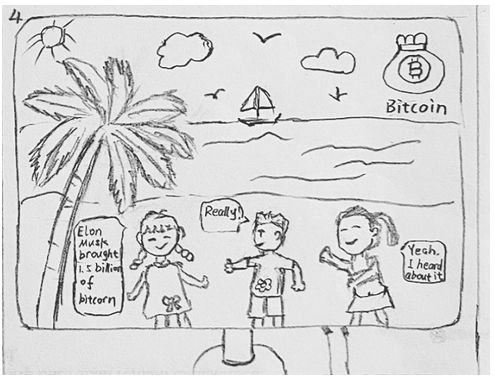 4
Bitcoin
Elon
Musk
brought
1.5 billion
of
bitcorn
Really!
Yeah.
I heard
about it